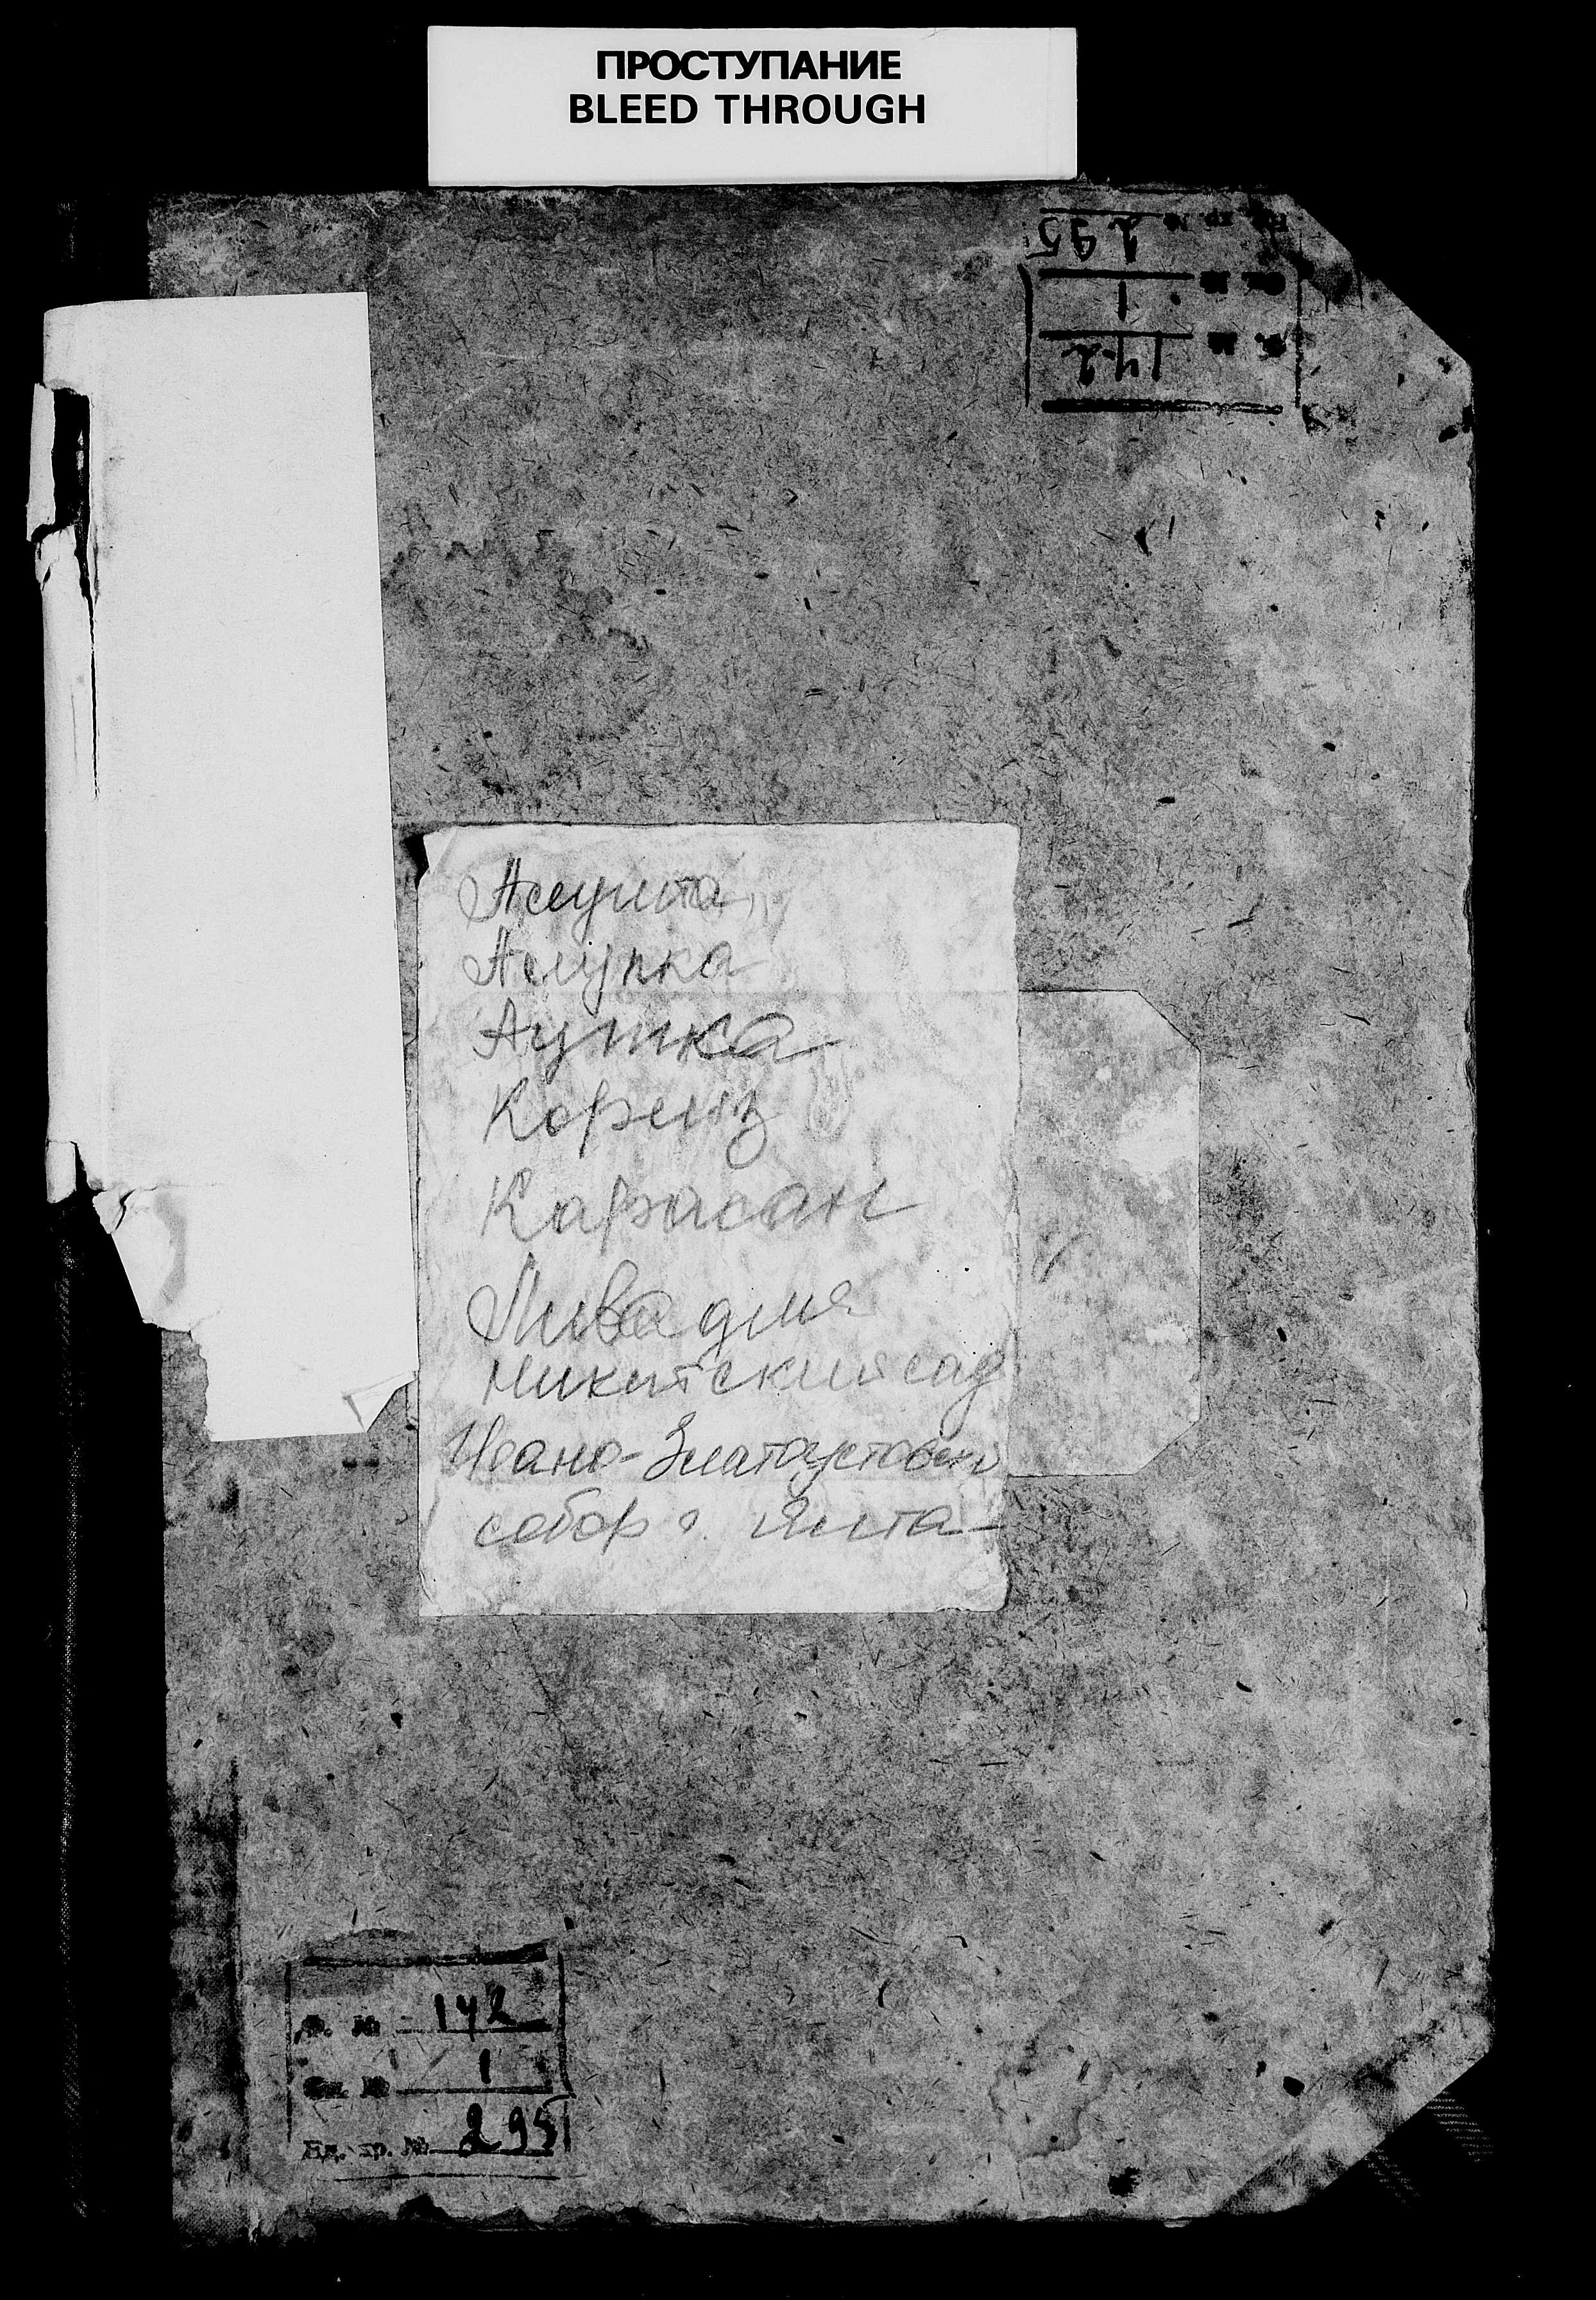 ПРОСТУПАНИЕ
BLEED THROUGH
295
1
142
Алушта
Алупка
Аутка
Кореиз
Карасан
Ливадия
Никитский сад
Иоано-Златоустовск
собор г. Ялта
Ф. № 142
Оп. № 1
Ед. хр. № 295